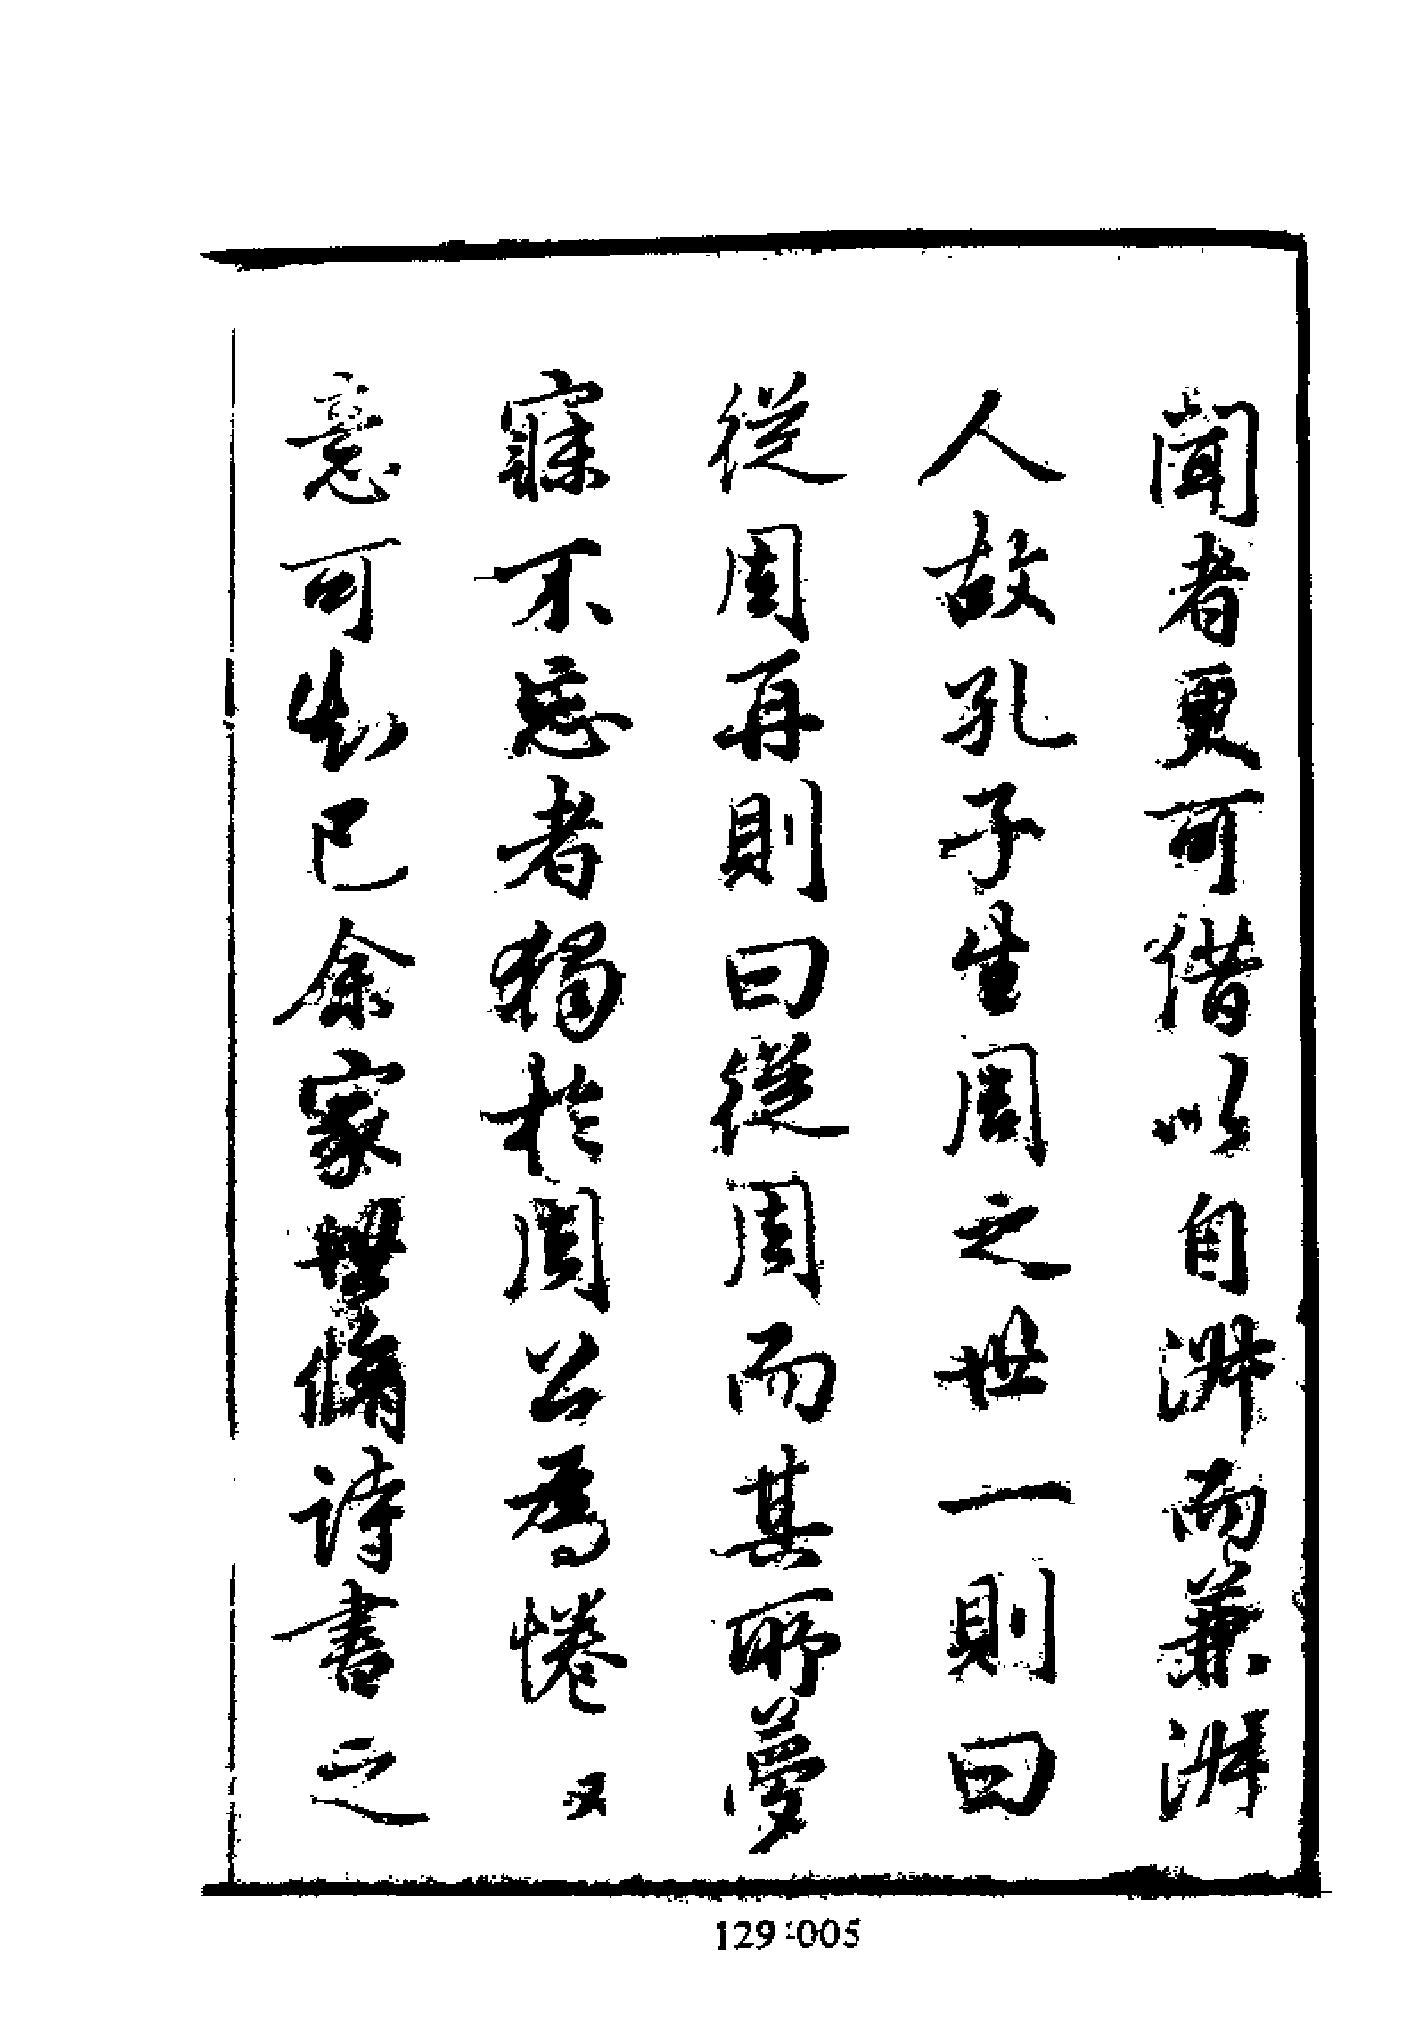 聞者更可借以自淑而兼淑
人故孔子生周之世一則曰
從周再則曰從周而其所夢
寐不忘者獨於周公爲惓又
意可知已余家世脩詩書之
129-005